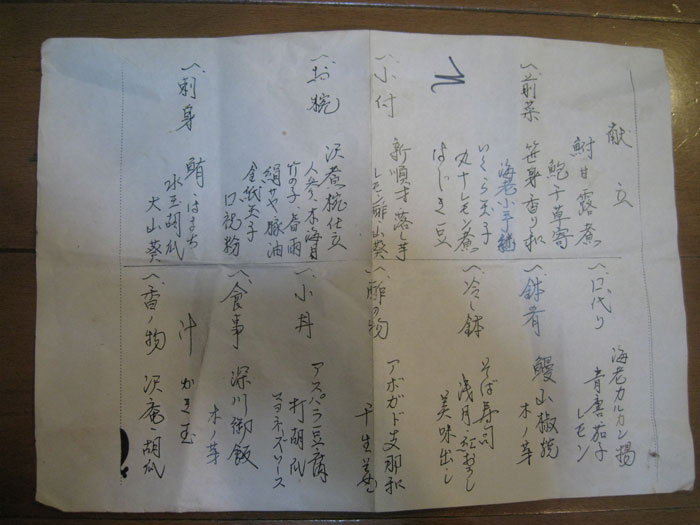 献立
へ前菜
鮒甘露煮
鮑千草寄
笹身香り和
海老小手毬
いくら玉子
丸十レモン煮
はじき豆
へ小付
新順才落し芋
レモン酢・山葵
へお椀
沢煮椀仕立
人参・木海月
竹の子・春雨
絹サヤ・豚油
金紙玉子
口胡粉
へ刺身
鮪・はまち
水玉胡瓜
大山葵
へ口代り
海老カルカン揚
青唐茄子
レモン
へ鉢肴
鰻山椒焼
木ノ芽
へ冷し鉢
そば寿司
浅月・紅おろし
美味出し
へ酢の物
アボガド支那和
干生姜
へ小丼
アスパラ豆腐
打胡瓜
マヨネーズソース
へ食事
深川御飯
木ノ芽
汁 かき玉
へ香ノ物
沢庵・胡瓜